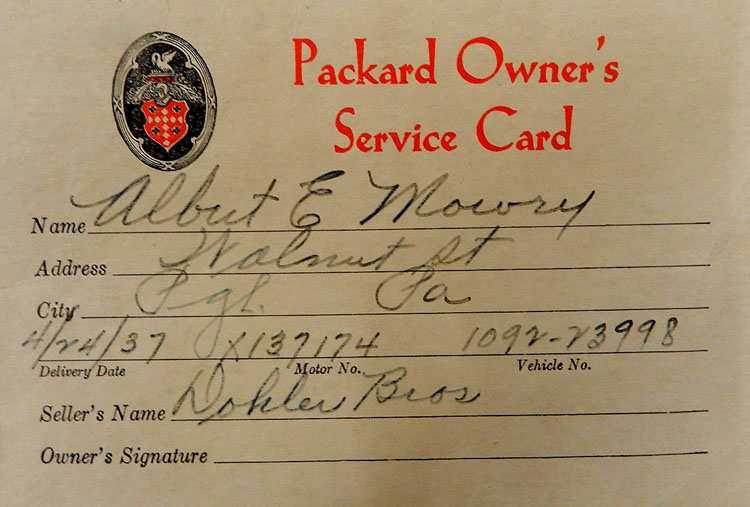 Packard Owner's
Service Card
Name Albert E Mowry
Address Walnut St
City Pgh. Pa
4/24/37 X137174 1092-23998
Delivery Date Motor No. Vehicle No.
Seller's Name Dohler Bros
Owner's Signature